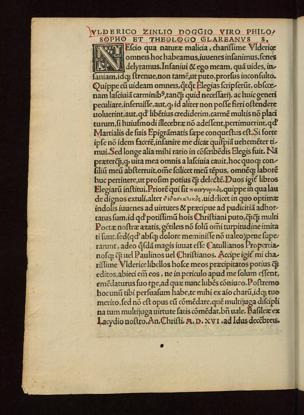 VLDERICO ZINLIO DOGGIO VIRO PHILO/
SOPHO ET THEOLOGO GLAREANVS S.
NEscio qua naturæ malicia, charissime Vlderice
omnes hoc habeamus, iuuenes insanimus, senes
delyramus. Insaniui & ego meam, quis dubitet, in
saniam, idq; strenue, non tamē, ut puto, prorsus inconsulto.
Quippe cū uideam omneis, qūqȝ Elegias scripserūt, obscœ
nam lasciuiā carminib9, tanqȝ quid necessariū, ac huic generi
peculiare, inseruisse, aut, q; id aliter non posse fieri ostendere
uoluerint, aut, qd libētius crediderim, carmē multis nō placi
turum, si huiusmodi illecebræ nō adessent, putauerint, qd
Martialis de suis Epigrāmatis sæpe conquestus est. Si forte
ipse nō idem facerē, insanire me dicāt quispiā uehementer ti
mui. Sed longe alia mihi ratio in cōscribēdis Elegis fuit. Nā
præterqȝ, q; uita mea omnis a lasciuia cauit, hoc quoq; con
siliū meū absterruit,
huc pertinere, ut prosim potius qȝ delectē. Duos igit libros
Elegiarū institui. Priorē qui sit παιγνικός, quippe in quo lau
de dignos extuli, alter διδακτικός, uidelicet in quo optimæ
indolis iuuenes ad uirtutes & præcipue ad pudicitiā adhor
tatus sum, id qd potissimū hois Christiani puto, qūqȝ multi
Poetæ nostræ ætatis, gētiles nō solū omi turpitudine imita
ti sunt, sed qd absq; dolore meminisse nō ualeo, pene supe
rarunt, adeo qdā magis iuuat esse Catullianos Propertia
nosq; qȝ uel Paulinos uel Christianos. Accipe igit mi cha
rissime Vlderice libellos hosce meos præcipitatos potius qȝ
editos, abieci em̄ eos
emēdaturus suo tpe, ad quæ nunc lubēs cōniuo. Postremo
hoc unū tibi persuasum habe, te mihi ex aīo charū, idq; tuo
merito, sed nō est opus eū cōmēdare, quē multijuga discipli
na tum multijuga uirtute satis cōmēdāt. bn̄ uale. Basileæ ex
Lacydio nostro. An. Christi. M. D. XVI. ad Idus decēbreis.